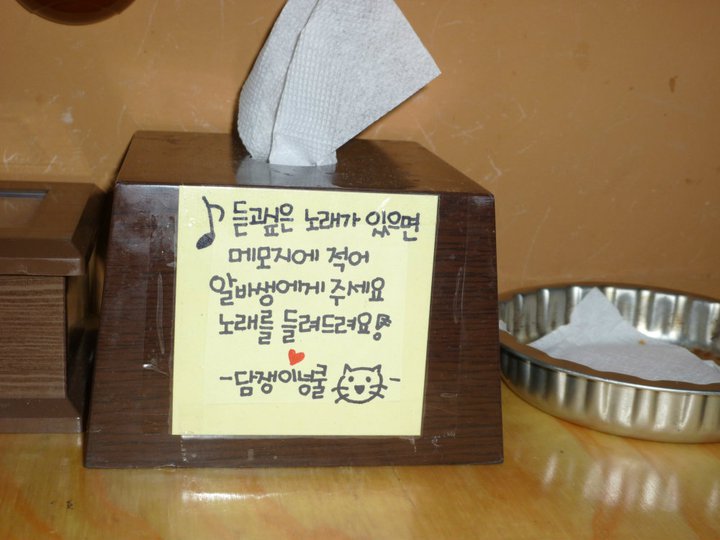 ♪ 듣고싶은 노래가 있으면
메모지에 적어
알바생에게 주세요
노래를 들려드려요!
♥
-담쟁이넝쿨 -